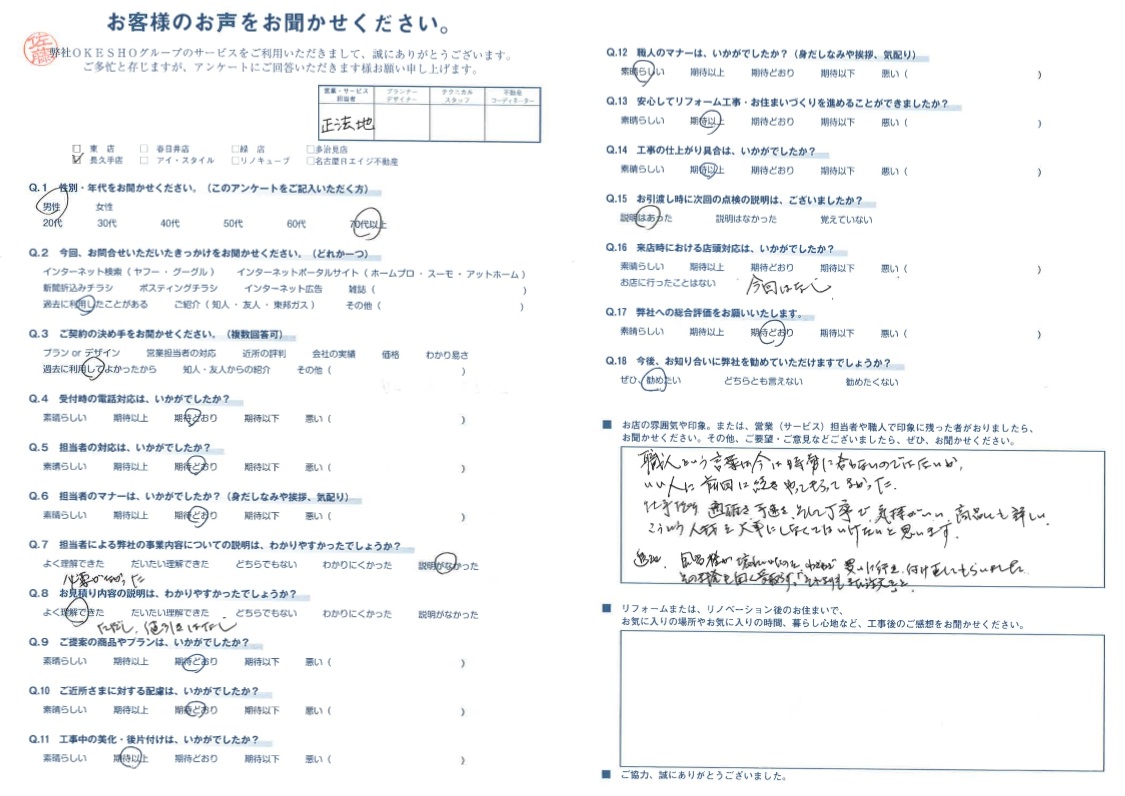 お客様のお声をお聞かせください。
佐藤
弊社OKESHOグループのサービスをご利用いただきまして、誠にありがとうございます。
ご多忙と存じますが、アンケートにご回答いただきます様お願い申し上げます。
営業・サービス担当者 プランナーデザイナー テクニカルスタッフ 不動産コーディネーター
正法地
□ 東 店 □ 春日井店 □緑 店 □多治見店
☑ 長久手店 □ アイ・スタイル □リノキューブ □名古屋Rエイジ不動産
Q.1 性別・年代をお聞かせください。(このアンケートをご記入いただく方)
男性 女性
20代 30代 40代 50代 60代 70代以上
Q.2 今回、お問合せいただいたきっかけをお聞かせください。(どれか一つ)
インターネット検索(ヤフー・グーグル) インターネットポータルサイト(ホームプロ・スーモ・アットホーム)
新聞折込みチラシ ポスティングチラシ インターネット広告 雑誌( )
過去に利用したことがある ご紹介(知人・友人・東邦ガス) その他( )
Q.3 ご契約の決め手をお聞かせください。(複数回答可)
プラン or デザイン 営業担当者の対応 近所の評判 会社の実績 価格 わかり易さ
過去に利用してよかったから 知人・友人からの紹介 その他( )
Q.4 受付時の電話対応は、いかがでしたか?
素晴らしい 期待以上 期待どおり 期待以下 悪い( )
Q.5 担当者の対応は、いかがでしたか?
素晴らしい 期待以上 期待どおり 期待以下 悪い( )
Q.6 担当者のマナーは、いかがでしたか?(身だしなみや挨拶、気配り)
素晴らしい 期待以上 期待どおり 期待以下 悪い( )
Q.7 担当者による弊社の事業内容についての説明は、わかりやすかったでしょうか?
よく理解できた だいたい理解できた どちらでもない わかりにくかった 説明がなかった
必要がなかった
Q.8 お見積り内容の説明は、わかりやすかったでしょうか?
よく理解できた だいたい理解できた どちらでもない わかりにくかった 説明がなかった
ただし、値引きはなし
Q.9 ご提案の商品やプランは、いかがでしたか?
素晴らしい 期待以上 期待どおり 期待以下 悪い( )
Q.10 ご近所さまに対する配慮は、いかがでしたか?
素晴らしい 期待以上 期待どおり 期待以下 悪い( )
Q.11 工事中の美化・後片付けは、いかがでしたか?
素晴らしい 期待以上 期待どおり 期待以下 悪い( )
Q.12 職人のマナーは、いかがでしたか?(身だしなみや挨拶、気配り)
素晴らしい 期待以上 期待どおり 期待以下 悪い( )
Q.13 安心してリフォーム工事・お住まいづくりを進めることができましたか?
素晴らしい 期待以上 期待どおり 期待以下 悪い( )
Q.14 工事の仕上がり具合は、いかがでしたか?
素晴らしい 期待以上 期待どおり 期待以下 悪い( )
Q.15 お引渡し時に次回の点検の説明は、ございましたか?
説明はあった 説明はなかった 覚えていない
Q.16 来店時における店頭対応は、いかがでしたか?
素晴らしい 期待以上 期待どおり 期待以下 悪い( )
お店に行ったことはない 今回はなし
Q.17 弊社への総合評価をお願いいたします。
素晴らしい 期待以上 期待どおり 期待以下 悪い( )
Q.18 今後、お知り合いに弊社を勧めていただけますでしょうか?
ぜひ、勧めたい どちらとも言えない 勧めたくない
■ お店の雰囲気や印象。または、営業(サービス)担当者や職人で印象に残った者がおりましたら、
お聞かせください。その他、ご要望・ご意見などございましたら、ぜひ、お聞かせください。
職人という言葉は今は時勢に合わないのではないか、
いい人に前回に続きやってもらってよかった。
仕事が 適確さ、手速さ、そして丁寧で、気持がいい、商品にも詳しい
こういう人材を大事にしなくてはいけないと思います。
追記
買いに行き、付け直してもらいました
■ リフォームまたは、リノベーション後のお住まいで、
お気に入りの場所やお気に入りの時間、暮らし心地など、工事後のご感想をお聞かせください。
■ ご協力、誠にありがとうございました。